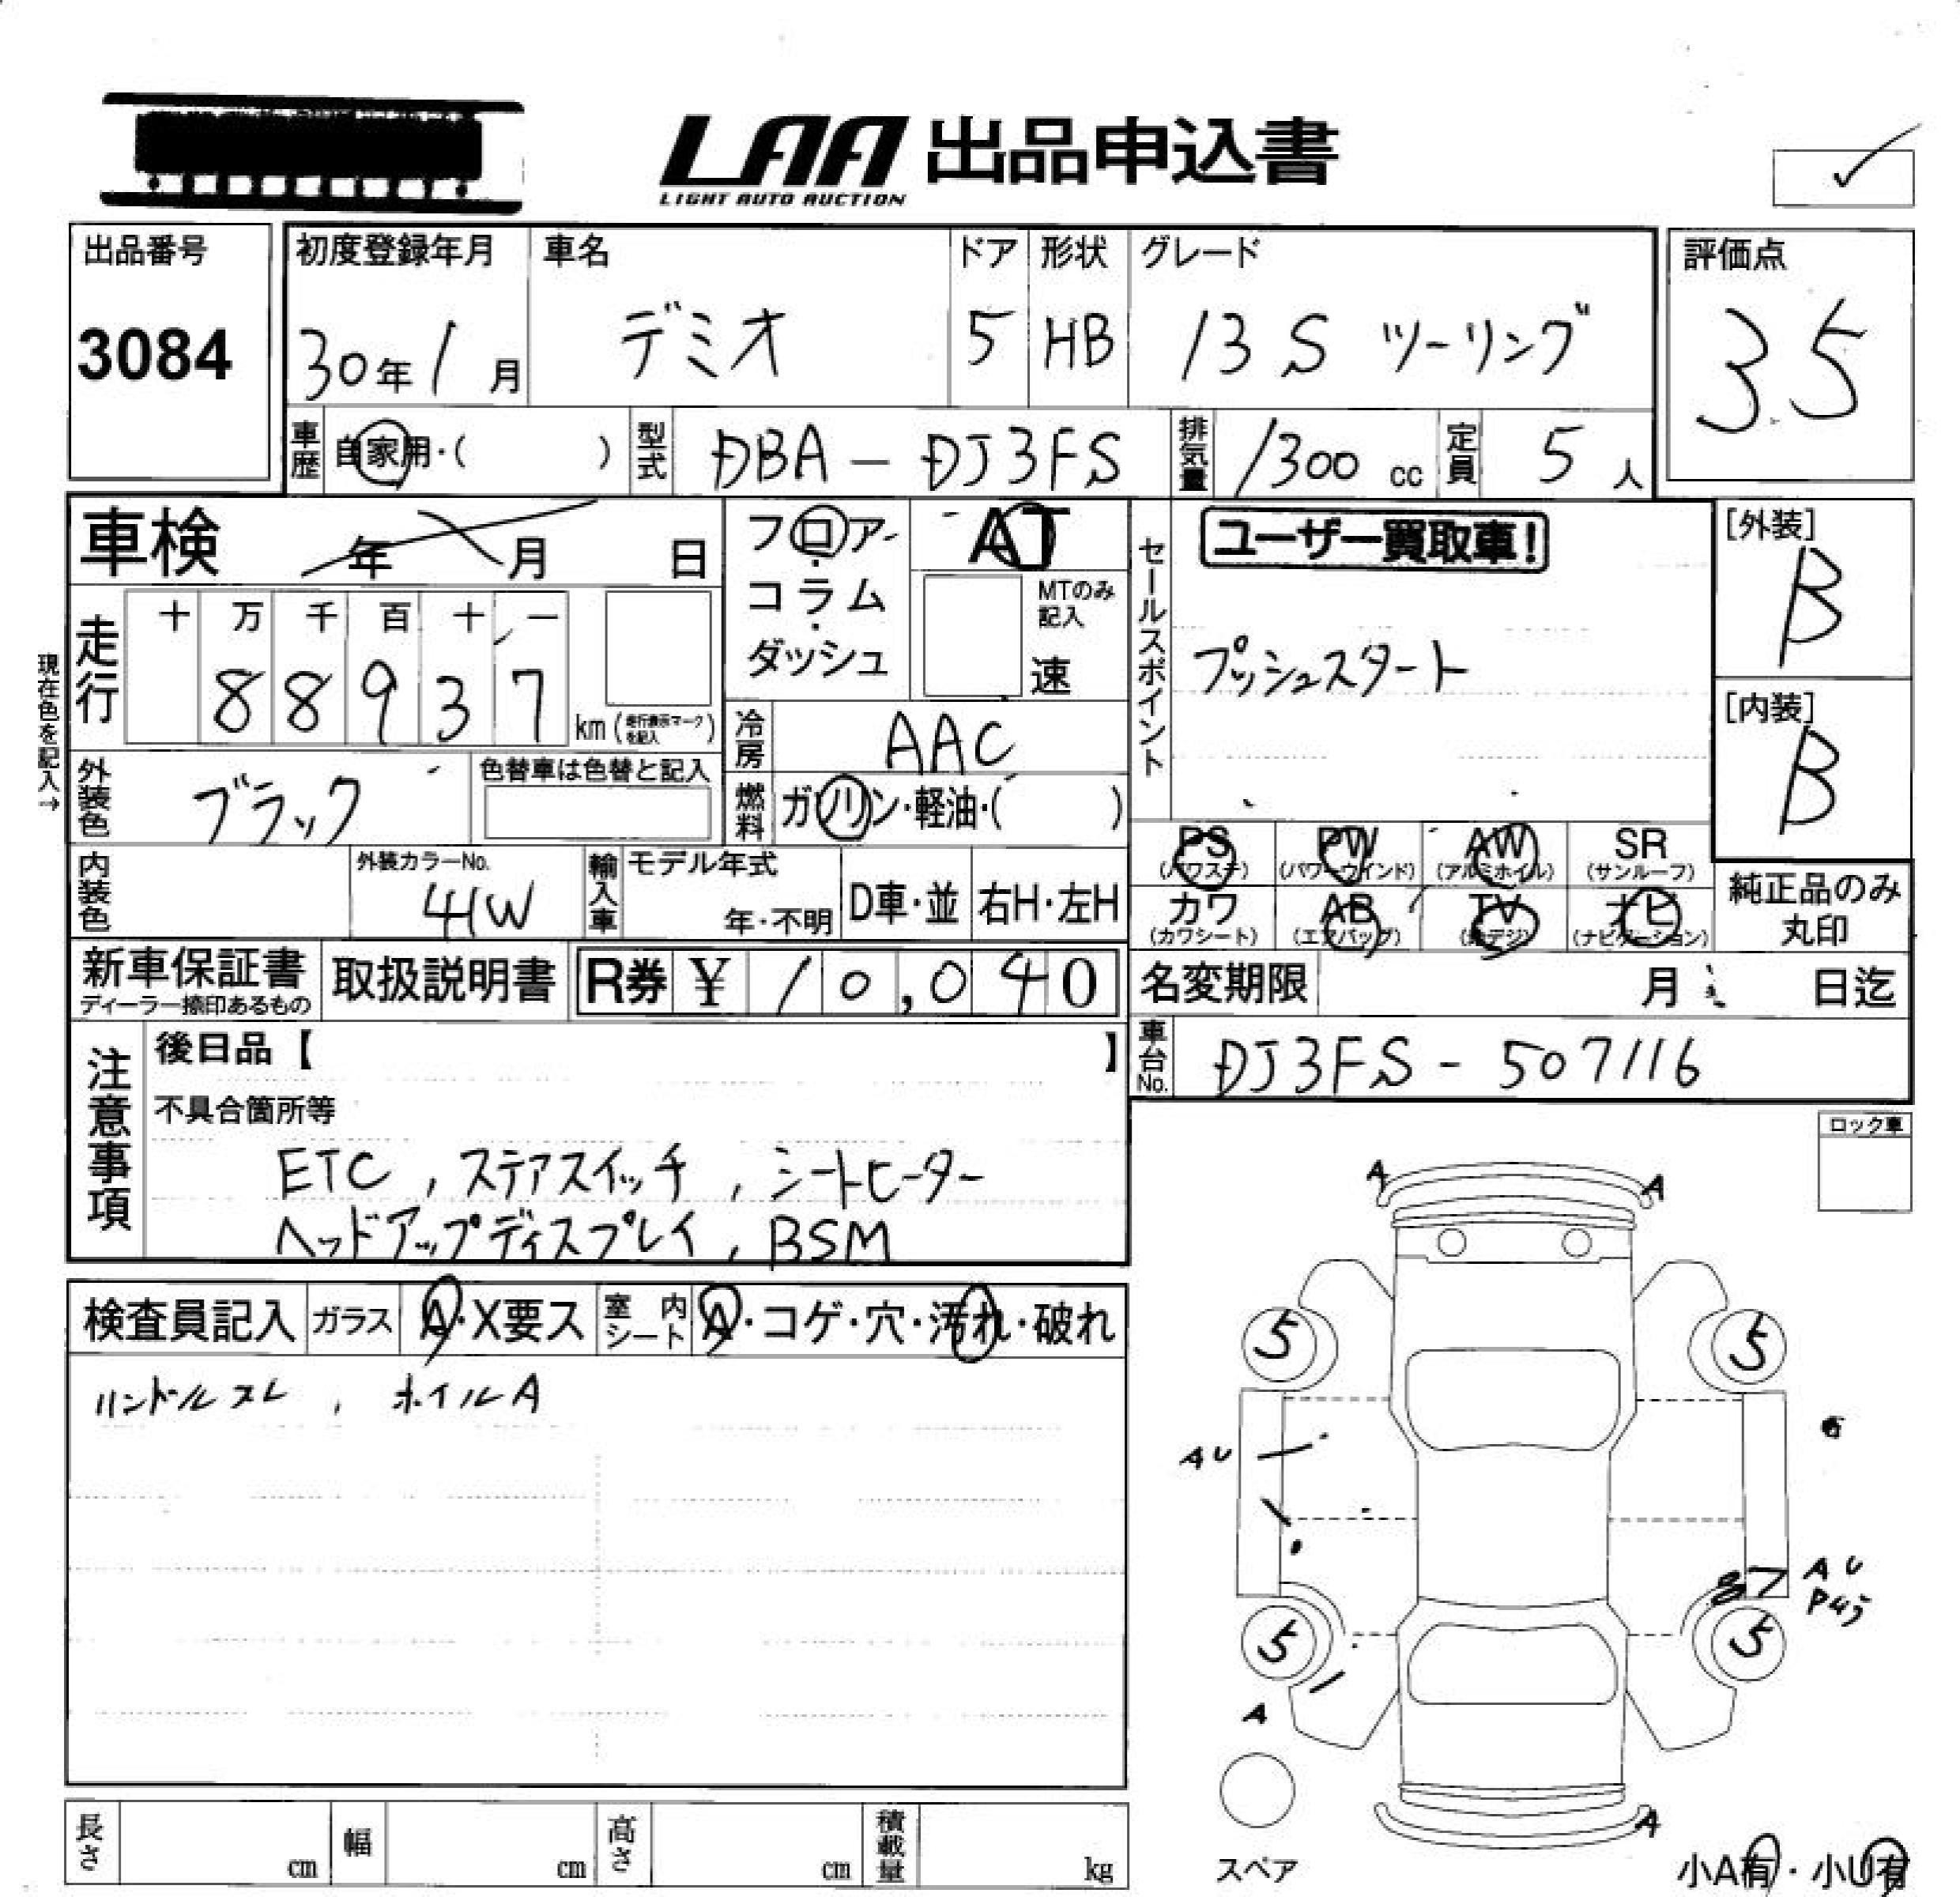 LAA 出品申込書
LIGHT AUTO AUCTION
出品番号 初度登録年月 車名 ドア 形状 グレード 評価点
3084 30年1月 デミオ 5 HB 13S ツーリング 3.5
車歴 自家用・( ) 型式 DBA-DJ3FS 排気量 1300cc 定員 5人
車検 年 月 日
フロア・コラム・ダッシュ
AT
MTのみ記入
速
セールスポイント
ユーザー買取車!
プッシュスタート
[外装]
B
[内装]
B
現在色を記入→
走行 十 万 千 百 十 一
88937
km(走行表示マークを記入)
冷房 AAC
外装色 ブラック
色替車は色替と記入
燃料 ガソリン・軽油・( )
PS PW AW SR
(パワステ) (パワーウインド) (アルミホイル) (サンルーフ)
カワ AB TV ナビ
(カワシート) (エアバッグ) (地デジ) (ナビゲーション)
純正品のみ
丸印
内装色 外装カラーNo. 41W 輸入車 モデル年式 年・不明 D車・並 右H・左H
新車保証書
ディーラー捺印あるもの
取扱説明書 R券 ¥10,040
名変期限 月 日迄
車台No. DJ3FS-507116
注意事項
後日品【 】
不具合箇所等
ETC, ステアスイッチ, シートヒーター
ヘッドアップディスプレイ, BSM
ロック車
検査員記入 ガラス A・X要ス 室内シート A・コゲ・穴・汚れ・破れ
ハンドルスレ, ホイルA
A A
5 5
AU
AU
5 5
A
A
スペア
小A有・小U有
長さ cm 幅 cm 高さ cm 積載量 kg